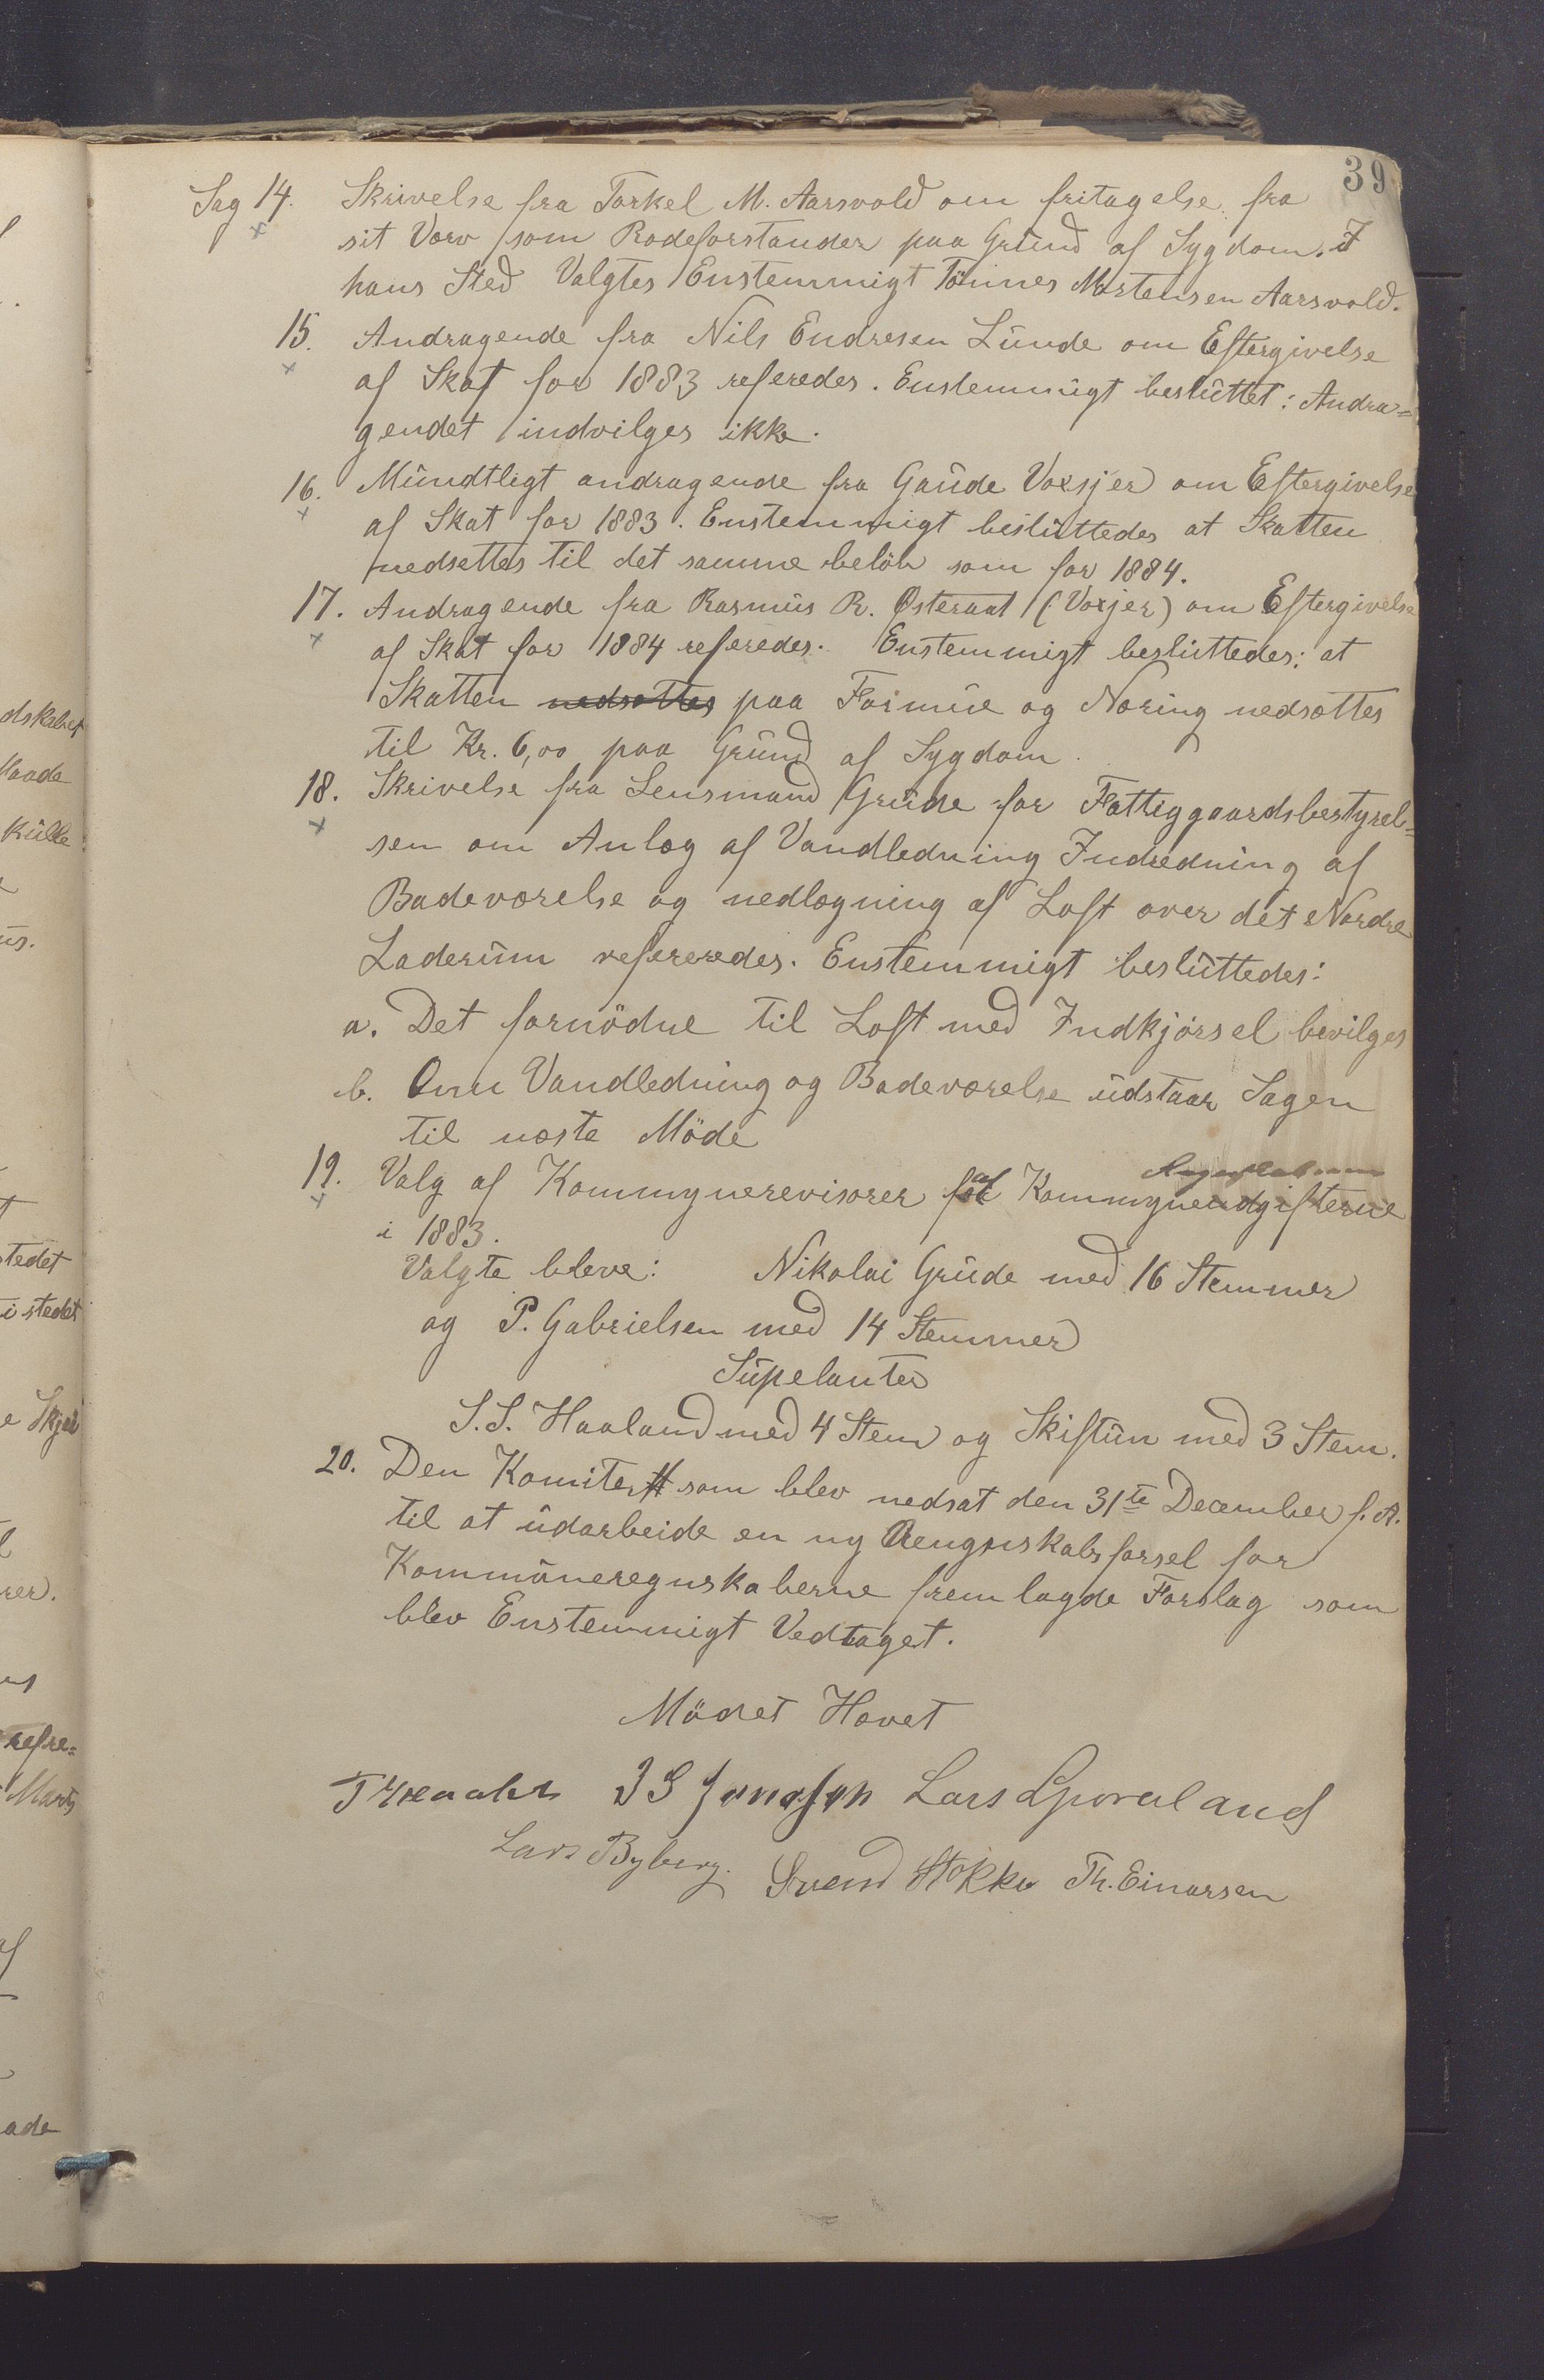 39
Sag 14. Skrivelse fra Torkel M. Aarsvold om fritagelse fra
sit Værv som Rodeforstander paa Grund af Sygdom. I
hans Sted Valgtes Enstemmigt Tönnes Mortensen Aarsvold.
15. Andragende fra Nils Endresen Lunde om Eftergivelse
af Skat for 1883 referedes. Enstemmigt besluttet: Andra=
gendet indvilges ikke.
16. Mundtligt andragende fra Gaude Voxsjer om Eftergivelse
af Skat for 1883. Enstemmigt besluttedes at Skatten
nedsettes til det samme belöb som for 1884.
17. Andragende fra Rasmus R. Østeraat (Voxjer) om Eftergivelse
af Skat for 1884 referedes. Enstemmigt besluttedes: at
Skatten nedsættes paa Formue og Næring nedsættes
til Kr. 6,00 paa Grund af Sygdom.
18. Skrivelse fra Lensmand Grude for Fattiggaardsbestyrel=
sen om Anlæg af Vandledning Indredning af
Badeværelse og nedlægning af Loft over det Nordre
Laderum refereredes. Enstemmigt besluttedes:
a. Det fornödne til Loft med Indkjörsel bevilges
b. Om Vandledning og Badeværelse udstaar Sagen
til næste Möde
19. Valg af Kommynerevisorer af Kommyneudgifterne
i 1883.
Valgte bleve: Nikolai Grude med 16 Stemmer
og P. Gabrielsen med 14 Stemmer
Supelanter
S. S. Haaland med 4 Stem og Skiftun med 3 Stem.
20. Den Komite som blev nedsat den 31te December f. A.
til at udarbeide en ny Rengnskabsførsel for
Kommüneregnskaberne fremlagde Forslag som
blev Enstemmigt Vedtaget.
Mödet Hævet
Lars
Lars Byberg. Svend Stokke Th. Einarsen
dskabet
Kulle
tedet
i stedet
e Skjei
rer.
refre=
Marts
ade